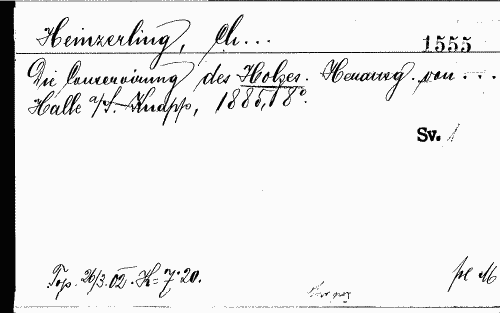 Heinzerling, Ch...
1555
Die Conservirung des Holzes. Herausg. von...
Halle a/S. Knapp, 1885, 8°.
Sv. 1
Top. 26/3.02. K= 7.20.